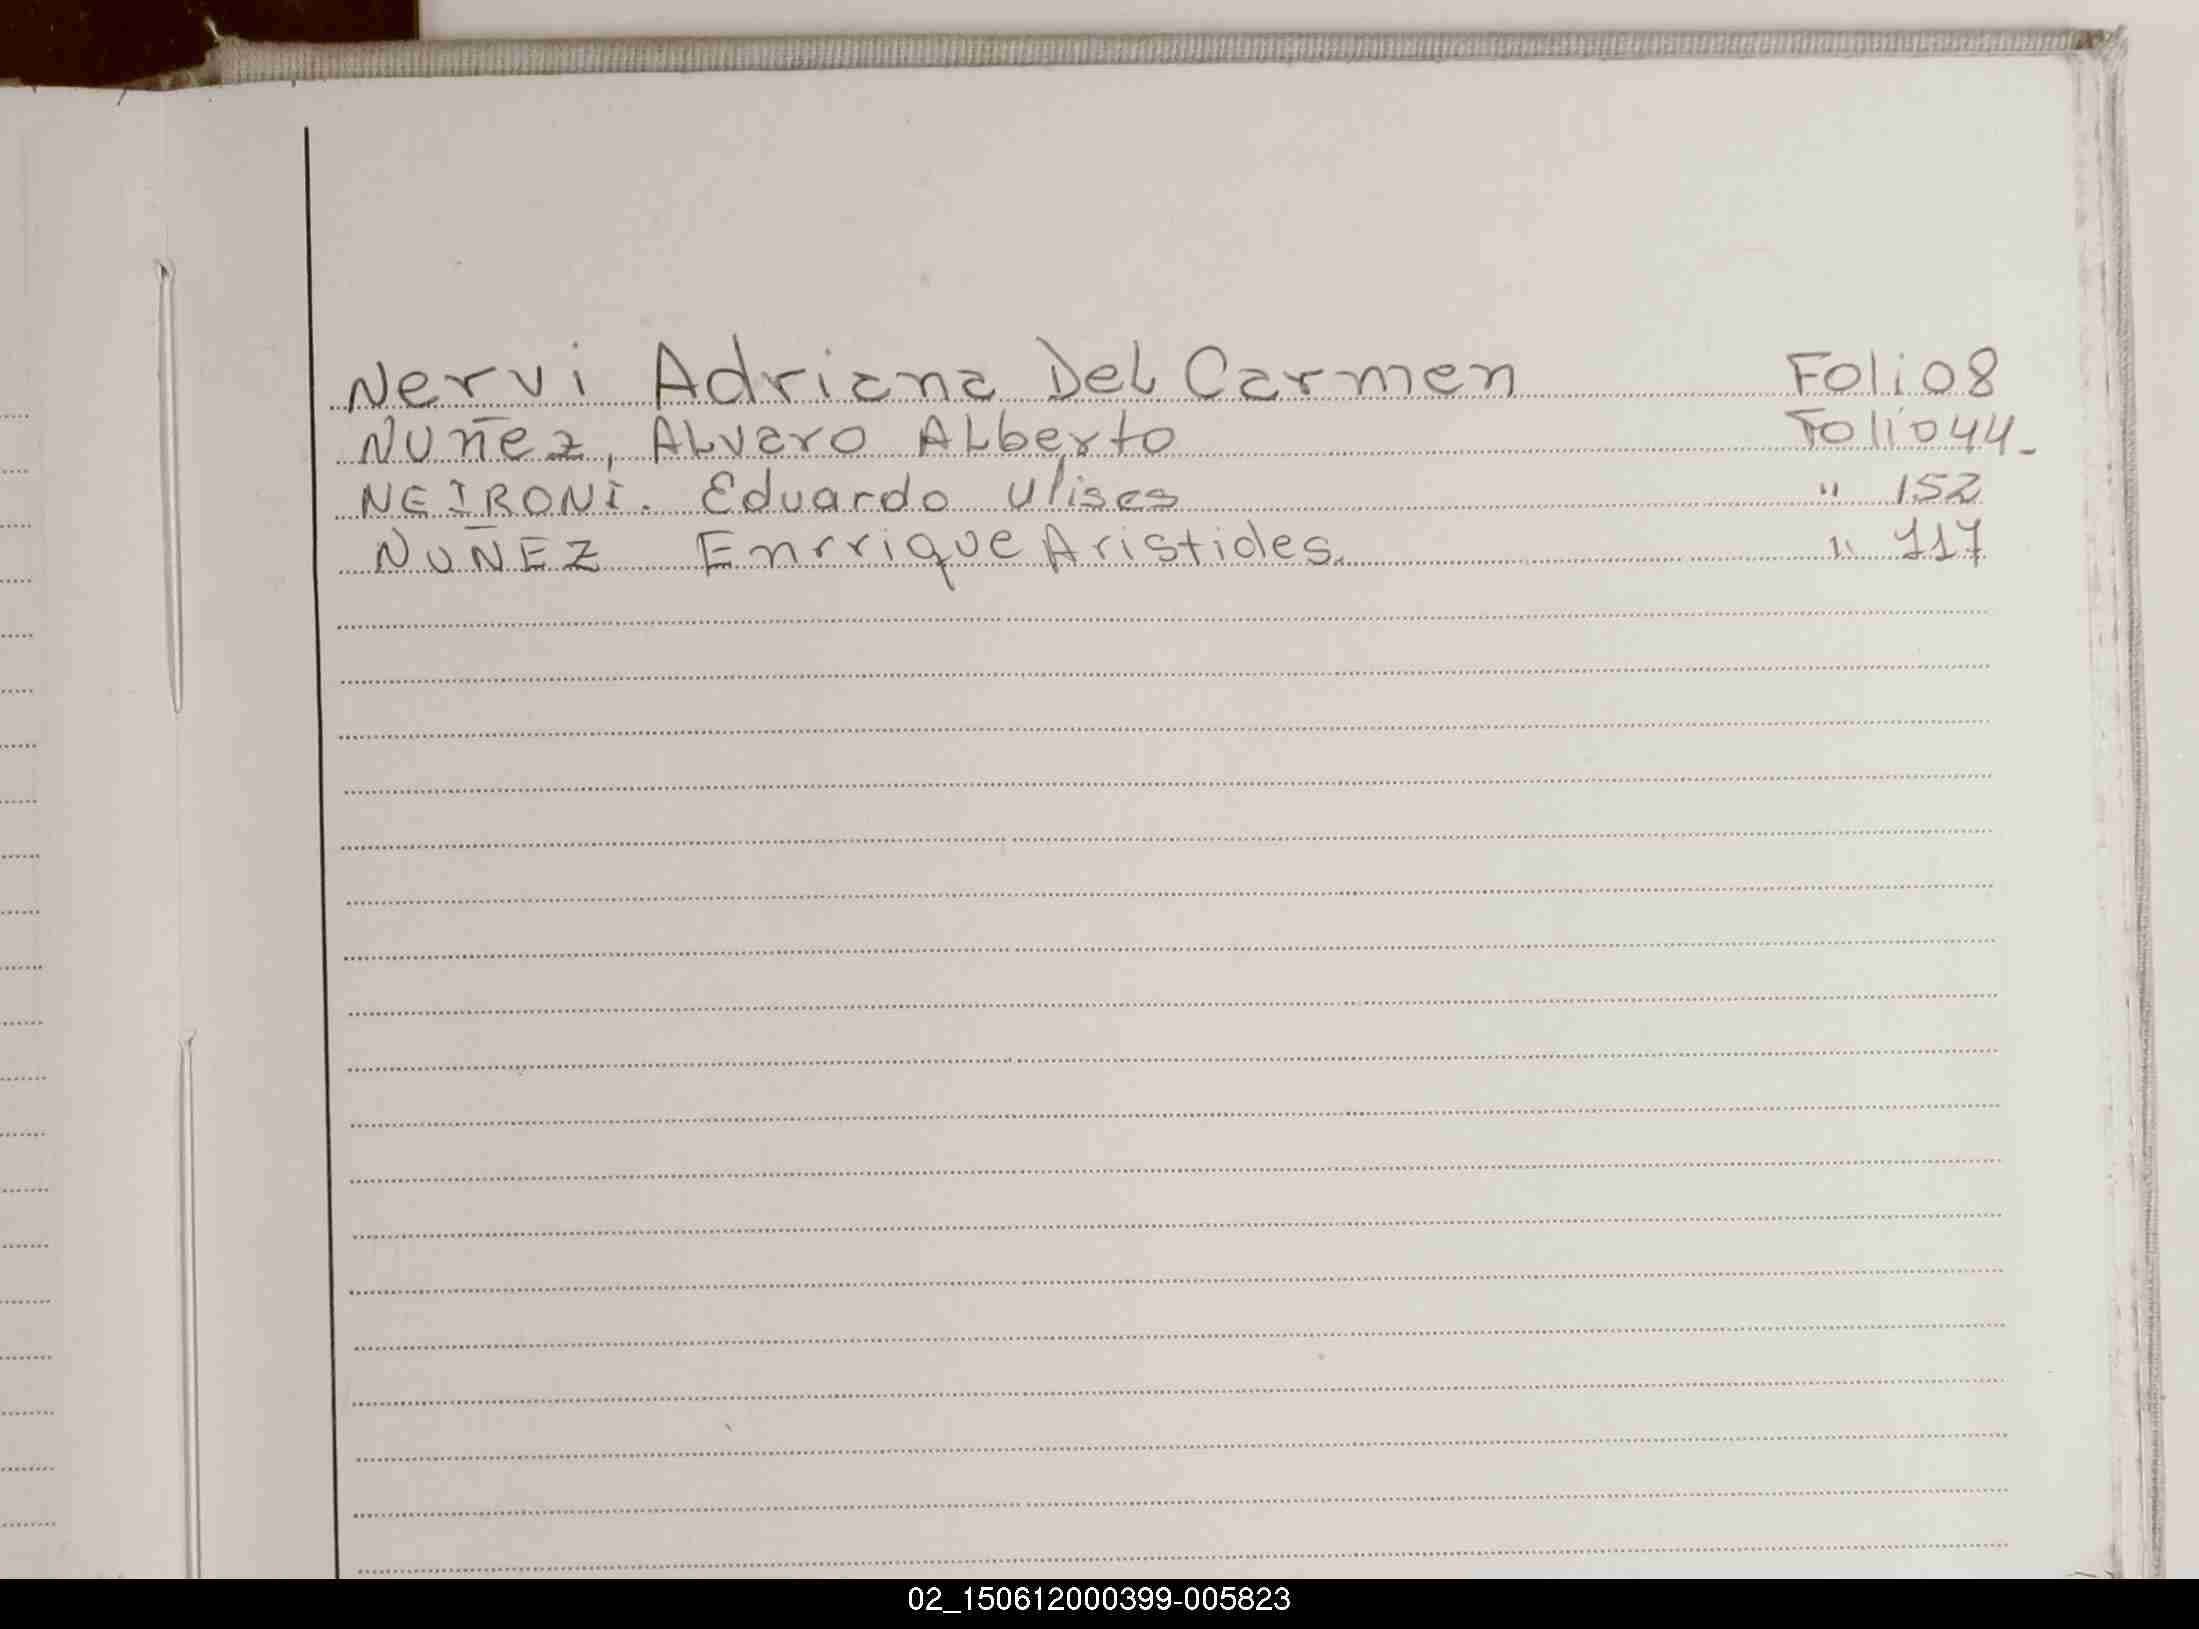 Nervi Adriana Del Carmen Folio 8
Nuñez, ALvaro ALberto Folio 44-
NEIRONi. Eduardo Ulises " 152
NUÑEZ Enrrique Aristides. " 117
02_150612000399-005823